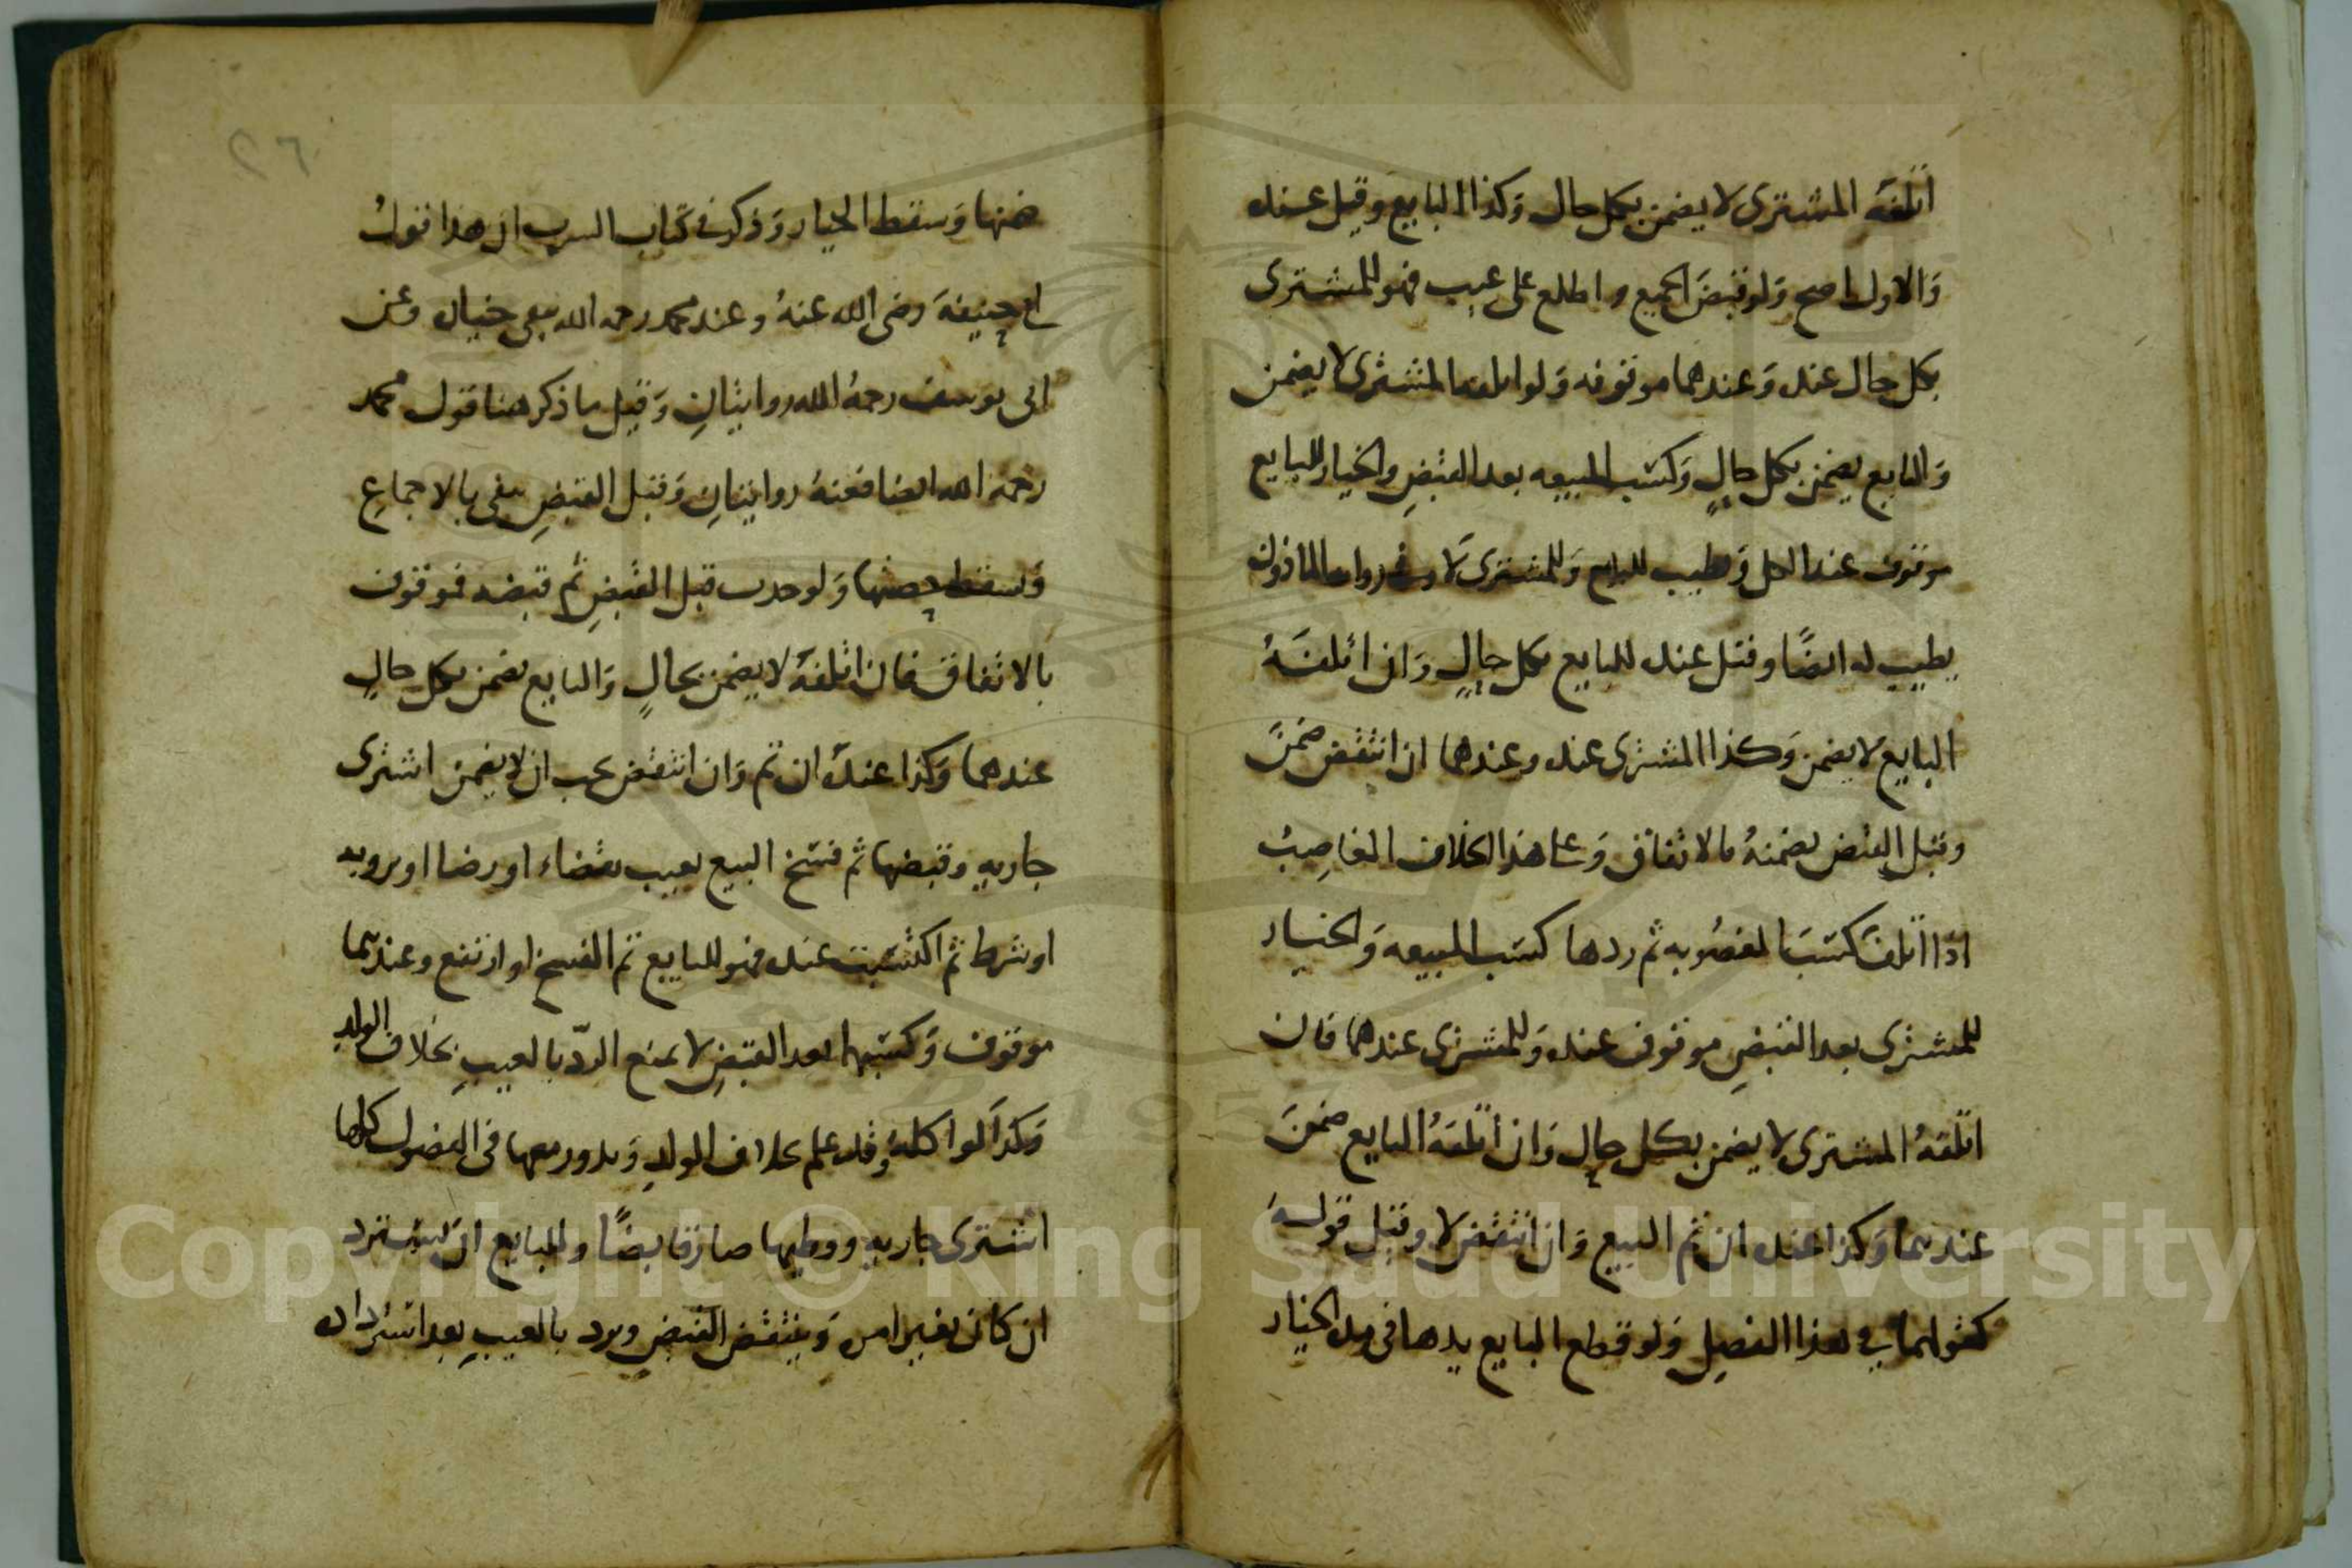 اتلفه المشترى لا يضمن بكل حال وَكذا البايع وقيل عنده
وَالاول اصح وَلو قبضَ الجميع و اطلع على عيب فهو للمشترى
بكل حال عنده وَعندهما موقوفه وَلو اتلفه المشترى لا يضمن
وَالبايع يضمن بكل حالٍ وَكسَب المبيعه بعد القبضِ والخيار للبايع
موقوف عند الكل وَيطيب للبايع وَللمشترى لا وفى رواية الماذون
يطيب له ايضًا وقبل عنده للبايع بكل حالٍ وَان اتلفَهُ
البايع لا يضمن وَكذا المشترى عنده وعندهما ان انتقض ضمنَ
وقبل القبض يضمنهُ بالاتفاق وَعلى هذا الخلاف الغاصِبُ
اذا اتلفَ كسَبَ المغصُوبه ثم ردها كسَب المبيعه وَالخيار
للمشترى بعد القبضِ موقوف عنده وَللمشترى عندهما فان
اتلفهُ المشترى لا يضمن بكل حالٍ وَان اتلفهُ البايع ضمنَ
عندهما وَكذا عنده ان تم البيع وَان انتقض لا وقبل قولهُ
كقولهما في هذا الفصلِ وَلو قطع البايع يدها فى مدة الخيار
ضنها وَسقط الخيار وَذكر فى كتاب الشرب ان هذا قولُ
ابي حنيفةَ رضى الله عنهُ وعند محمد رحمه الله يبقى خياره وعن
ابى يوسف رحمهُ الله روايتانِ وَقيل ما ذكر هنا قول محمد
رحمه الله ايضا فعنهُ روايتانِ وَقبل القبضِ يبقى بالاجماعِ
وَيسقط حصتها وَلو حدث قبل القبضِ ثم قبضه فموقوف
بالاتفاق فان اتلفهُ لا يضمن بحالٍ وَالبايع يضمن بكل حالٍ
عندهما وَكذا عندهُ ان تم وَان انتقض يجب ان لا يضمن اشترى
جاريه وقبضها ثم فسَخ البيع بعيب بقضاء او رضا او برويه
او شرط ثم اكتسَبت عنده فهو للبايع تم الفسخ او ارتفع وعندهما
موقوف وَكسَبها بعد القبضِ لا يمنع الردّ بالعيبِ بخلاف الولدِ
وَكذا لو اكلهُ وقد علم بخلاف الولدِ وَيدور معها فى الفصول كلها
اشترى جاريه ووطيها صار قابضًا وللبايع ان يسترد
ان كان بغير امره وَينتقض القبض ويرد بالعيبِ بعد استرداده